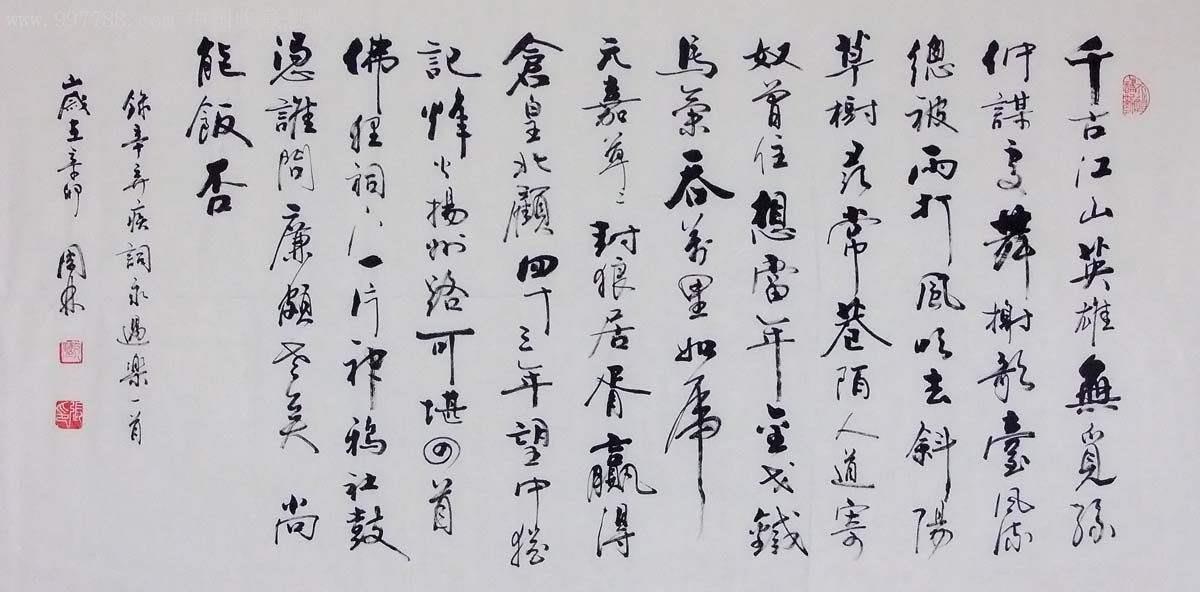 千古江山英雄無覓孫
仲謀處舞榭歌臺風流
總被雨打風吹去斜陽
草樹尋常巷陌人道寄
奴曾住想當年金戈鐵
馬氣吞萬里如虎
元嘉草々封狼居胥贏得
倉皇北顧四十三年望中猶
記烽火揚州路可堪回首
佛狸祠下一片神鴉社鼓
憑誰問廉頗老矣 尚
能飯否
錄辛弃疾詞永遇樂一首
歲在辛卯 周林
www.997788.com